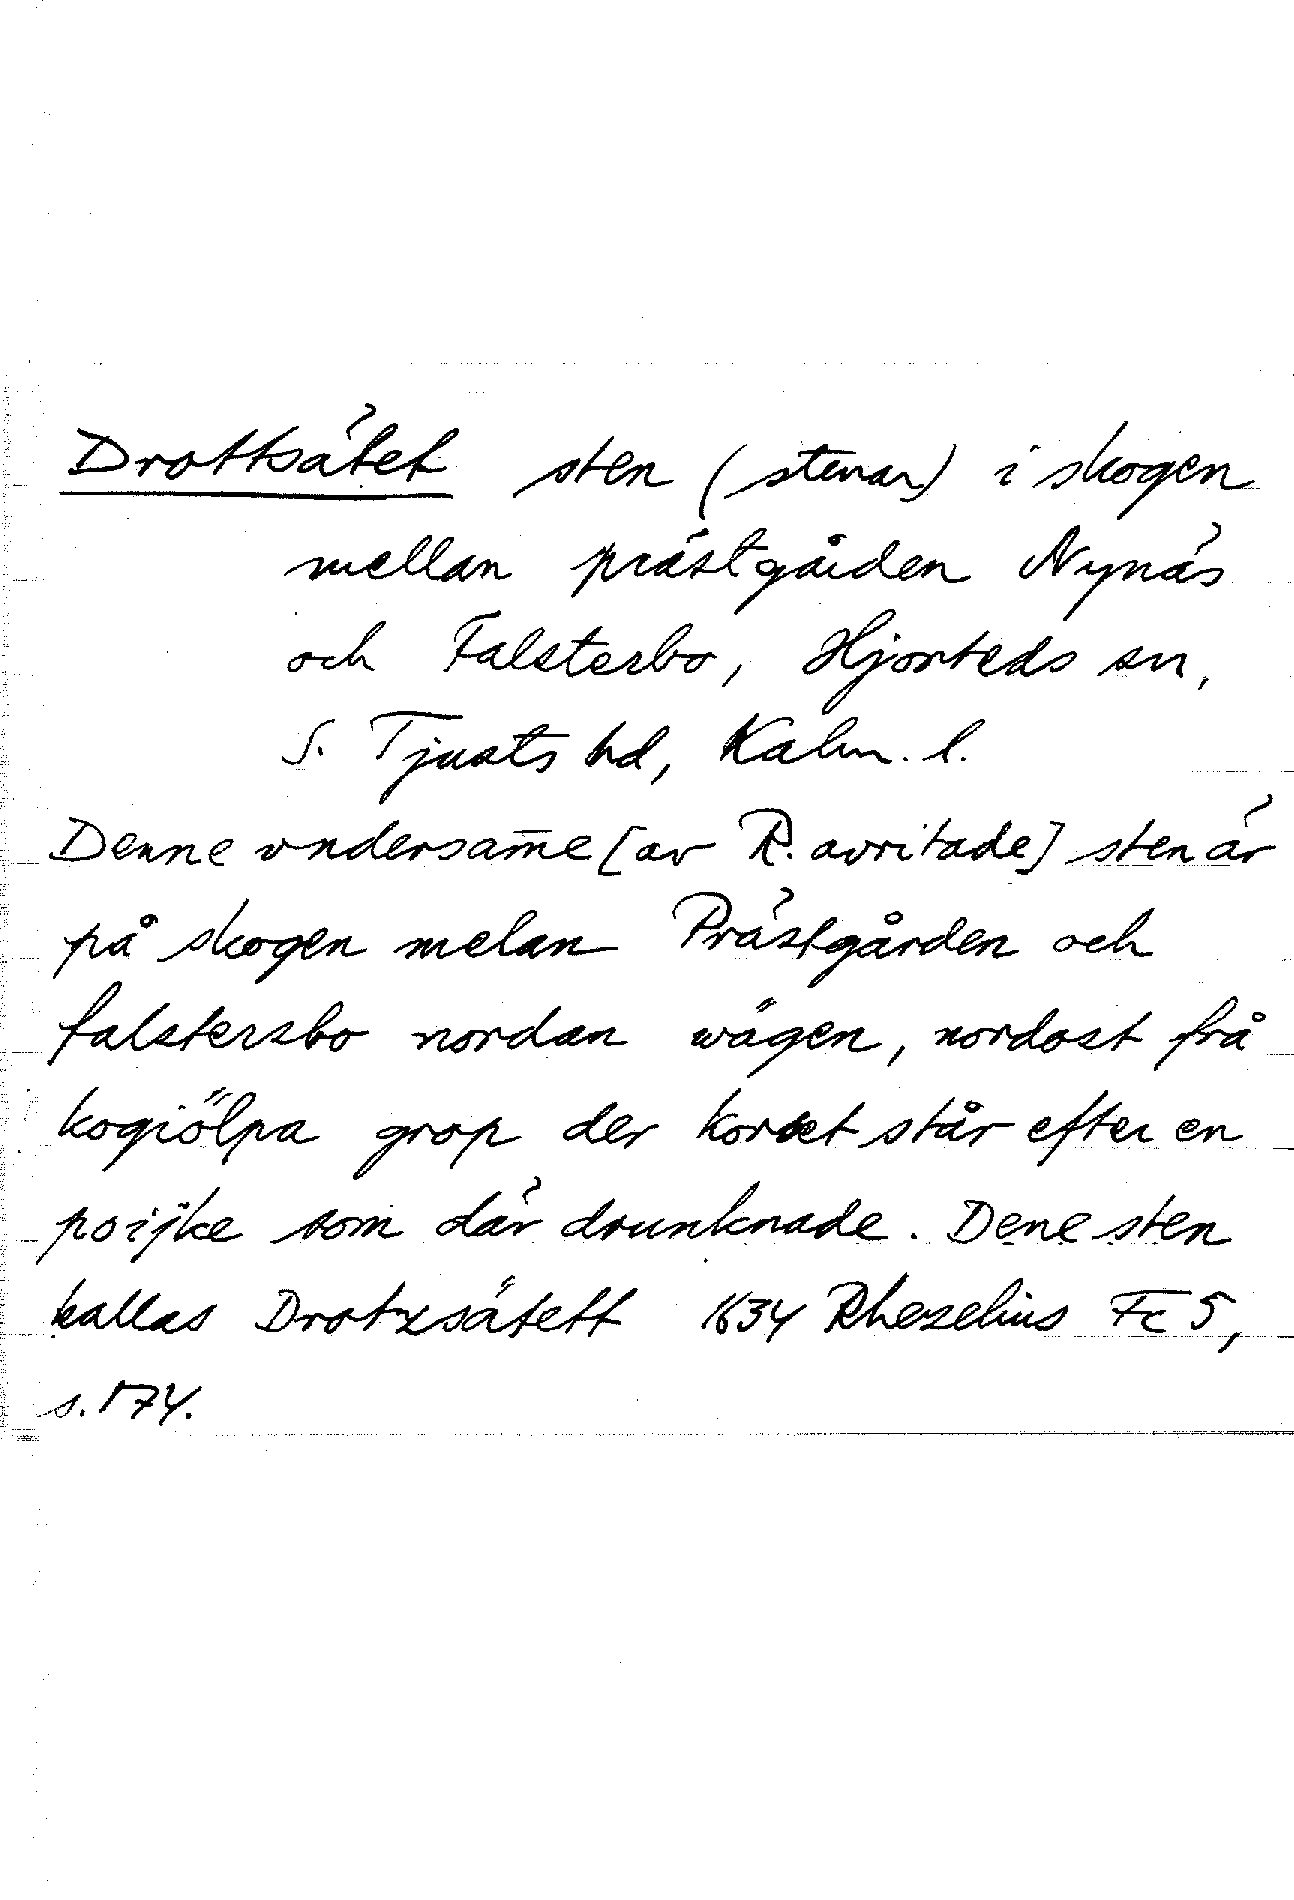 Drottsätet sten (stenar) i skogen
mellan prästgården Nynäs
och Falsterbo, Hjorteds sn,
S. Tjusts hd, Kalm. l.
Denne vndersam̅e [av R. avritade] sten är
på skogen melan Prästgården och
falstersbo nordan wägen, nordost frå
kogiölpa grop der korset står efter en
poijke som där drunknade. Dene sten
kallas Drotzsätett 1634 Rhezelius Fc 5,
s. 174.